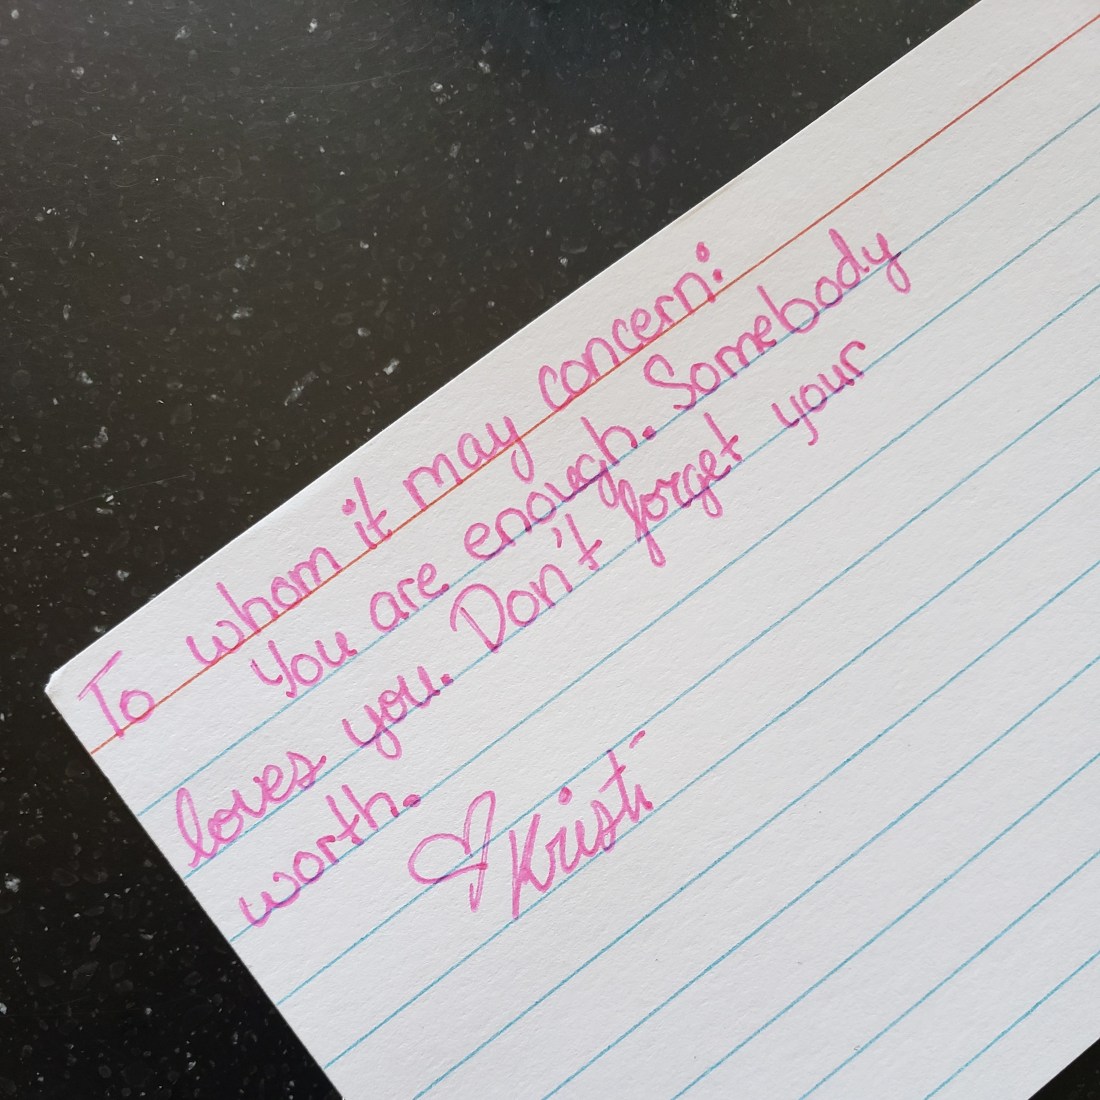 To whom it may concern:
You are enough. Somebody
loves you. Don't forget your
worth.
♡ Kristi